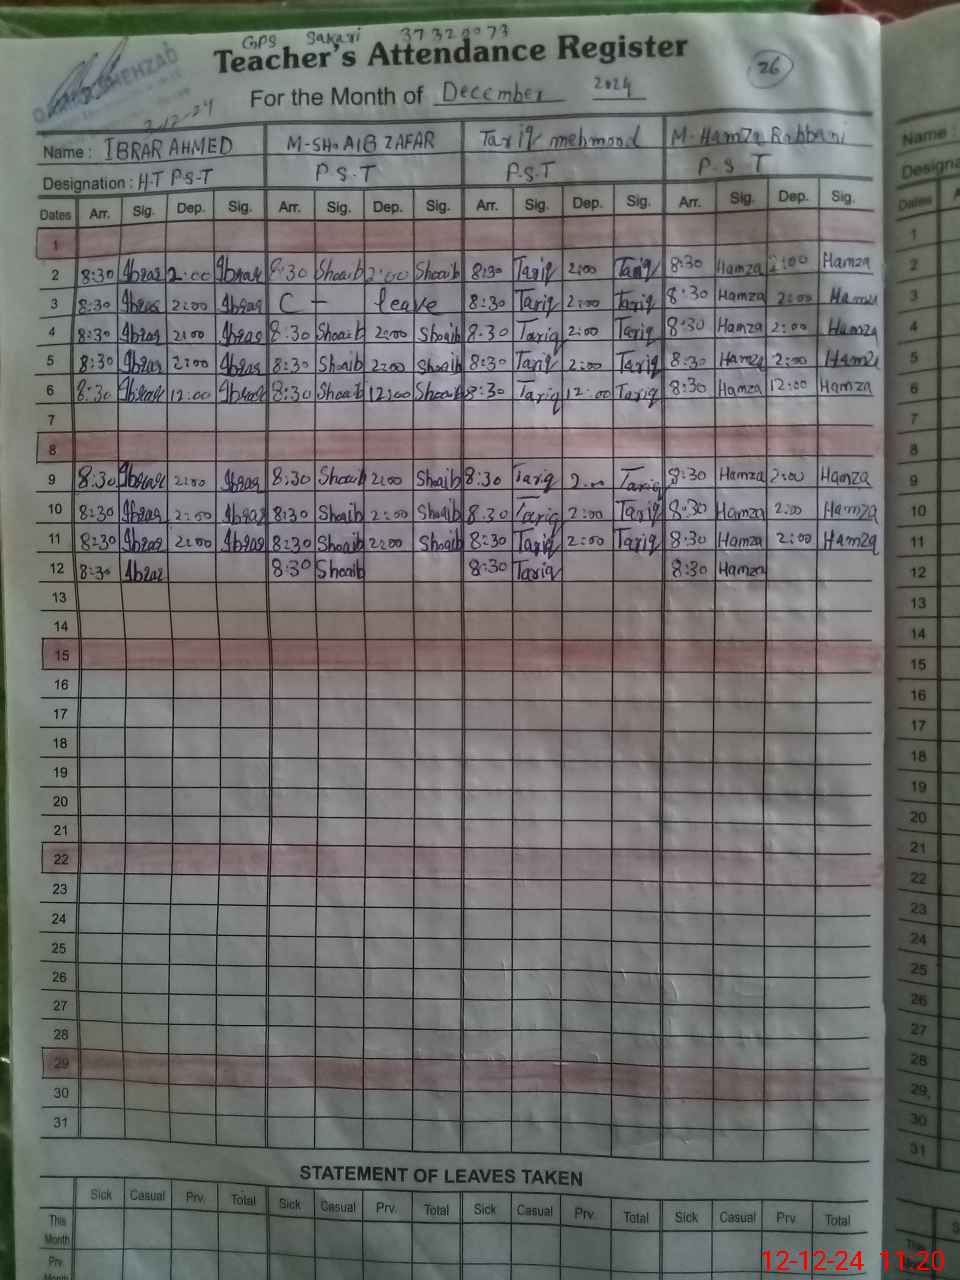 GPS Sakari 37320073
Teacher's Attendance Register
26
For the Month of December 2024
SHEHZAD
3/12/24
Name : IBRAR AHMED M-SHOAIB ZAFAR Tariq mehmood M-Hamza Rabbani
Designation : H.T P.S.T P.S.T P.S.T P.S.T
Dates Arr. Sig. Dep. Sig. Arr. Sig. Dep. Sig. Arr. Sig. Dep. Sig. Arr. Sig. Dep. Sig.
1
2 8:30 Ibrar 2:00 Ibrar 8:30 Shoaib 2:00 Shoaib 8:30 Tariq 2:00 Tariq 8:30 Hamza 2:00 Hamza
3 8:30 Ibrar 2:00 Ibrar C - leave 8:30 Tariq 2:00 Tariq 8:30 Hamza 2:00 Hamza
4 8:30 Ibrar 2:00 Ibrar 8:30 Shoaib 2:00 Shoaib 8:30 Tariq 2:00 Tariq 8:30 Hamza 2:00 Hamza
5 8:30 Ibrar 2:00 Ibrar 8:30 Shoaib 2:00 Shoaib 8:30 Tariq 2:00 Tariq 8:30 Hamza 2:00 Hamza
6 8:30 Ibrar 12:00 Ibrar 8:30 Shoaib 12:00 Shoaib 8:30 Tariq 12:00 Tariq 8:30 Hamza 12:00 Hamza
7
8
9 8:30 Ibrar 2:00 Ibrar 8:30 Shoaib 2:00 Shoaib 8:30 Tariq 2:00 Tariq 8:30 Hamza 2:00 Hamza
10 8:30 Ibrar 2:00 Ibrar 8:30 Shoaib 2:00 Shoaib 8:30 Tariq 2:00 Tariq 8:30 Hamza 2:00 Hamza
11 8:30 Ibrar 2:00 Ibrar 8:30 Shoaib 2:00 Shoaib 8:30 Tariq 2:00 Tariq 8:30 Hamza 2:00 Hamza
12 8:30 Ibrar 8:30 Shoaib 8:30 Tariq 8:30 Hamza
13
14
15
16
17
18
19
20
21
22
23
24
25
26
27
28
29
30
31
STATEMENT OF LEAVES TAKEN
Sick Casual Prv. Total Sick Casual Prv. Total Sick Casual Prv. Total Sick Casual Prv. Total
This
Month
Prv.
Month
Name :
Dates
1
2
3
4
5
6
7
8
9
10
11
12
13
14
15
16
17
18
19
20
21
22
23
24
25
26
27
28
29
30
31
12-12-24 11:20